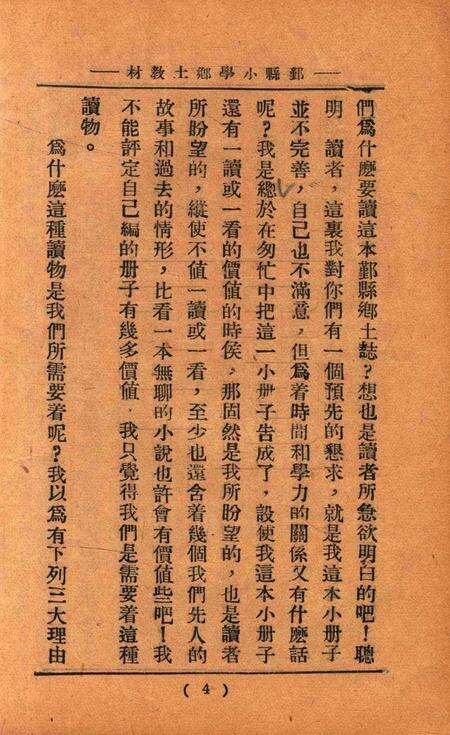 鄞縣小學鄉土教材
們爲什麽要讀這本鄞縣鄉土誌?想也是讀者所急欲明白的吧!聰
明　讀者,這裏我對你們有一個預先的懇求,就是我這本小册子
並不完善,自己也不滿意,但爲着時間和學力的關係又有什麽話
呢?我是總於在匆忙中把這一小册子告成了,設使我這本小册子
還有一讀或一看的價値的時侯,那固然是我所盼望的,也是讀者
所盼望的,縱使不値一讀或一看,至少也還含着幾個我們先人的
故事和過去的情形,比看一本無聊的小說也許會有價値些吧!我
不能評定自己編的册子有幾多價値.我只覺得我們是需要着這種
讀物。
爲什麽這種讀物是我們所需要着呢?我以爲有下列三大理由
(4)